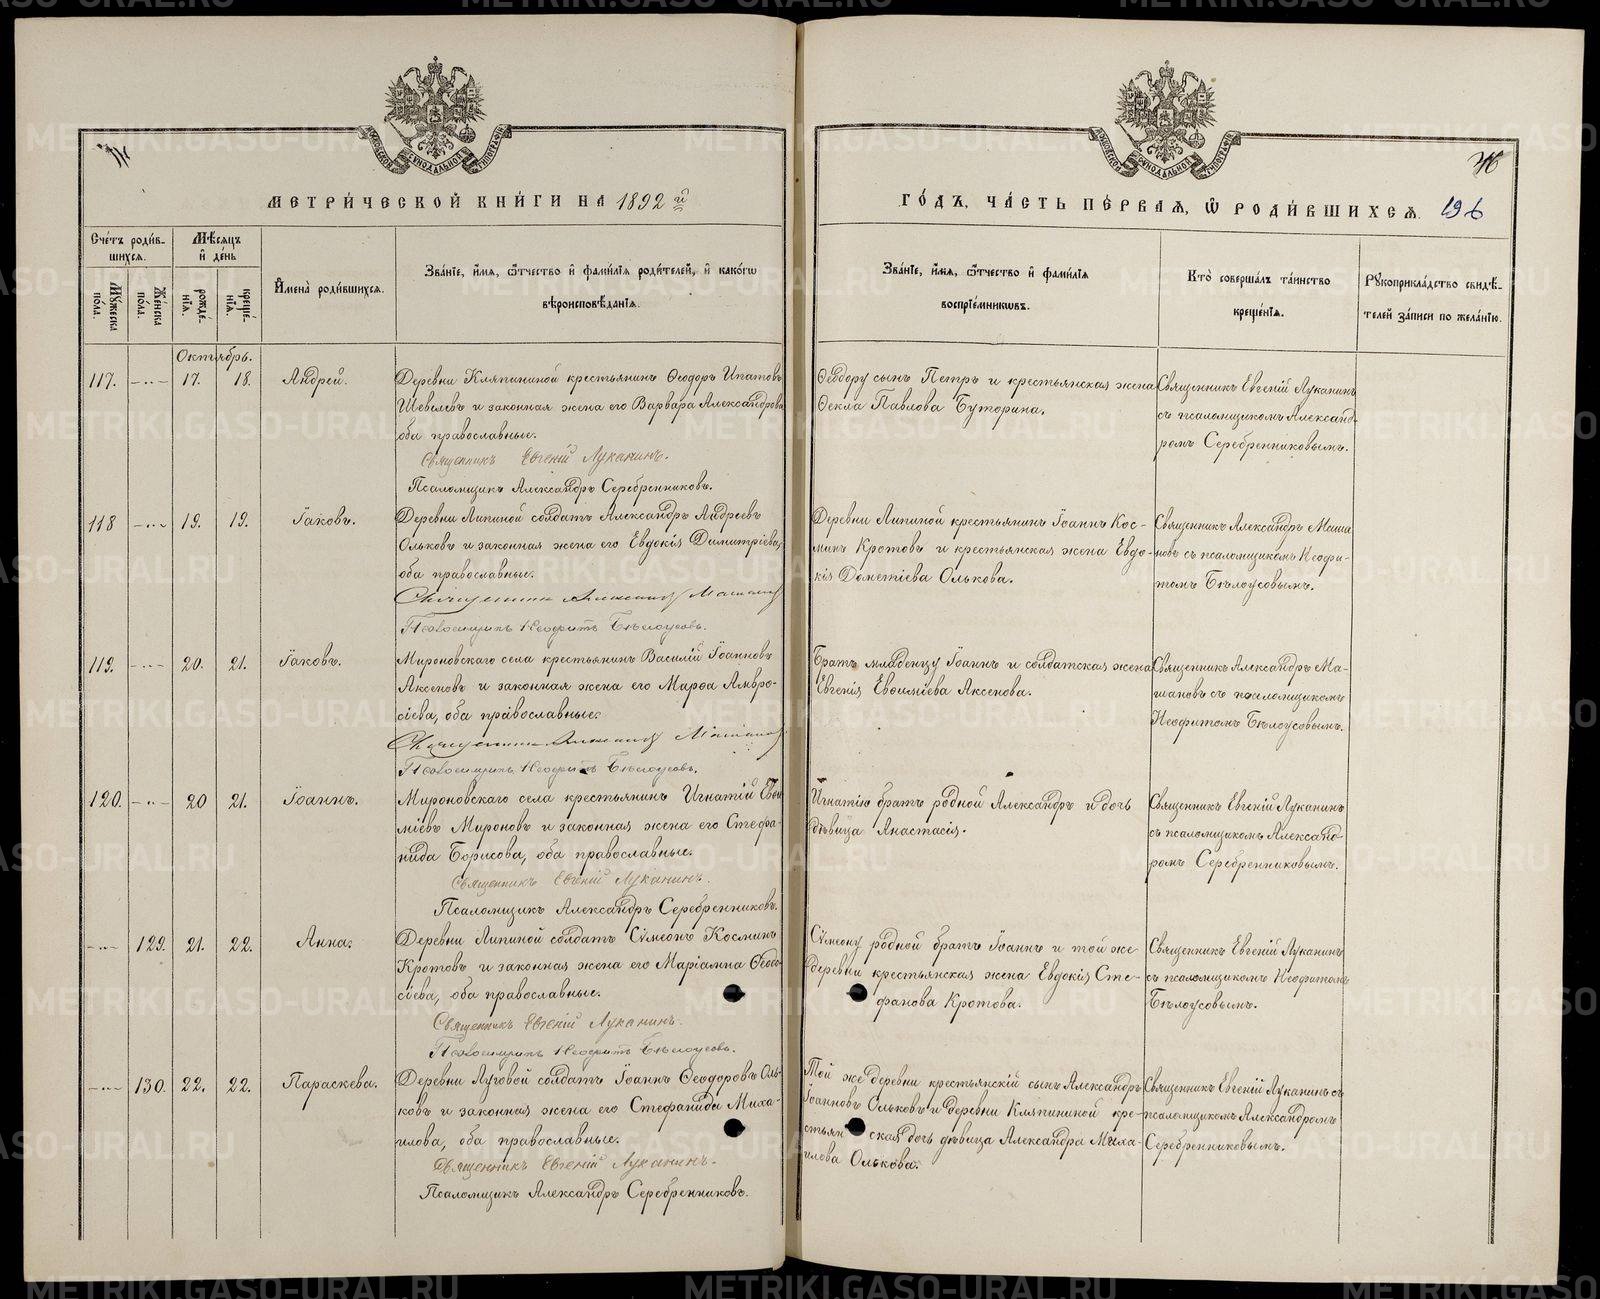 МЕТРИ́ЧЕСКОЙ КНИ́ГИ НА 1892 й
Сче́тъ роди́в-
шихся.
Мѣ́сяцъ
и҆ де́нь
Му́жеска
по́ла.
Же́нска
по́ла.
рожде́-
нїя.
креще́-
нїя.
И҆мена̀ роди́вшихся.
Зва́нїе, и҆́мя, ѻ҆́тчество и҆ фами́лїя роди́телей, и҆ како́гѡ
вѣроисповѣ́данїя.
Октябрь.
117. -..- 17. 18. Андрей.
Деревни Кляпининой крестьянинъ Ѳеодоръ Ипатовъ
Шевелевъ и законная жена его Варвара Александрова
оба православные.
Священникъ Евгеній Луканинъ.
Псаломщикъ Александръ Серебренниковъ.
118 -..- 19. 19. Іаковъ.
Деревни Липиной солдатъ Александръ Андреевъ
Ольковъ и законная жена его Евдокія Димитріева,
оба православные.
Священникъ Александръ Машановъ
Псаломщикъ Неофитъ Бѣлоусовъ.
119. -..- 20. 21. Іаковъ.
Мироновскаго села крестьянинъ Василій Іоанновъ
Аксеновъ и законная жена его Марѳа Амвро-
сіева, оба православные.
Священникъ Александръ Машановъ
Псаломщикъ Неофитъ Бѣлоусовъ.
120. -..- 20 21. Іоаннъ.
Мироновскаго села крестьянинъ Игнатій Евѳи
міевъ Мироновъ и законная жена его Стефа-
нида Борисова, оба православные.
Священникъ Евгеній Луканинъ.
Псаломщикъ Александръ Серебренниковъ.
-..- 129. 21. 22. Анна.
Деревни Липиной солдатъ Сѵмеонъ Косминъ
Кротовъ и законная жена его Маріамна Ѳеодо-
сіева, оба православные.
Священникъ Евгеній Луканинъ.
Псаломщикъ Неофитъ Бѣлоусовъ.
-..- 130. 22. 22. Параскева.
Деревни Луговой солдатъ Іоаннъ Ѳеодоровъ Оль-
ковъ и законная жена его Стефанида Миха-
илова, оба православные.
Священникъ Евгеній Луканинъ.
Псаломщикъ Александръ Серебренниковъ.
ГО́ДЪ, ЧА́СТЬ ПЕ́РВАЯ, Ѡ҆ РОДИ́ВШИХСЯ. 196
Зва́нїе, и҆́мя, ѻ҆́тчество и҆ фами́лїя
воспрїе́мникѡвъ.
Кто̀ соверша́лъ та́инство
креще́нїя.
Рукоприкла́дство свидѣ́-
телей за́писи по жела́нїю.
Ѳеодору сынъ Петръ и крестьянская жена
Ѳекла Павлова Буторина.
Священникъ Евгеній Луканинъ
съ псаломщикомъ Александ-
ромъ Серебренниковымъ.
Деревни Липиной крестьянинъ Іоаннъ Кос-
минъ Кротовъ и крестьянская жена Евдо-
кія Дометіева Олькова.
Священникъ Александръ Маша
новъ съ псаломщикомъ Неофи-
томъ Бѣлоусовымъ.
Братъ младенцу Іоаннъ и солдатская жена
Евгенія Евѳиміева Аксенова.
Священникъ Александръ Ма-
шановъ съ псаломщикомъ
Неофитомъ Бѣлоусовымъ.
Игнатію братъ родной Александръ и дочь
дѣвица Анастасія.
Священникъ Евгеній Луканинъ
съ псаломщикомъ Александ-
ромъ Серебренниковымъ.
Сѵмеону родной братъ Іоаннъ и той же
деревни крестьянская жена Евдокія Сте-
фанова Кротова.
Священникъ Евгеній Луканинъ
съ псаломщикомъ Неофитомъ
Бѣлоусовымъ.
Той же деревни крестьянскій сынъ Александръ
Іоанновъ Ольковъ и деревни Кляпининой кре-
стьянская дочь дѣвица Александра Миха-
илова Олькова.
Священникъ Евгеній Луканинъ съ
псаломщикомъ Александромъ
Серебренниковымъ.
METRIKI.GASO-URAL.RU